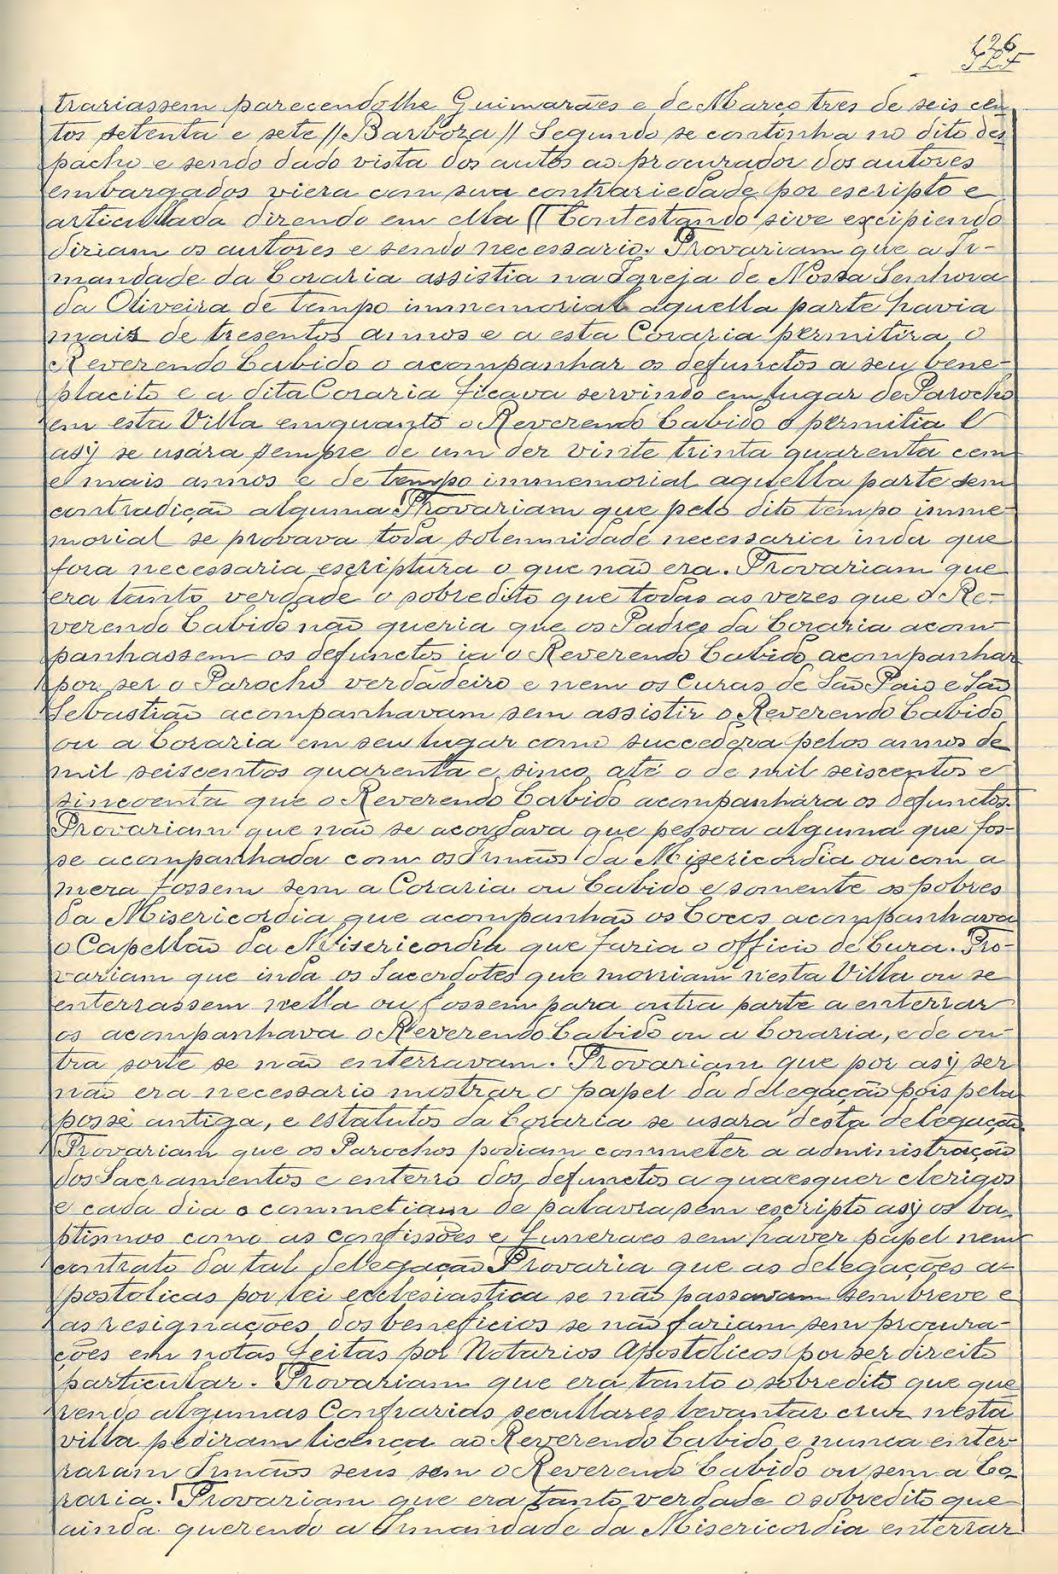 126
trariassem parecendolhe Guimarães e de Março tres de seis cen
tos setenta e sete // Barboza // Segundo se continha no dito des
pacho e sendo dado vista dos autos ao procurador dos autores
embargados viera com sua contrariedade por escripto e
articullada dizendo em ella // Contestando sive excipiendo
diriam os autores e sendo necessario. Provariam que a Ir-
mandade da Coraria assistia na Igreja de Nossa Senhora
da Oliveira de tempo immemorial aquella parte havia
mais de tresentos annos e a esta Coraria permitira o
Reverendo Cabido o acompanhar os defunctos a seu bene-
placito e a dita Coraria ficava servindo em lugar de Parocho
em esta Villa emquanto o Reverendo Cabido o permitia E
asÿ se usára sempre de um dez vinte trinta quarenta cem
e mais annos e de tempo immemorial aquella parte sem
contradição alguma Provariam que pelo dito tempo imme-
morial se provava toda solemnidade necessaria inda que
fora necessaria escriptura o que não era. Provariam que
era tanto verdade o sobredito que todas as vezes que o Re-
verendo Cabido não queria que os Padres da Coraria acom-
panhassem os defunctos ia o Reverendo Cabido acompanhar
por ser o Parocho verdadeiro e nem os Curas de São Paio e São
Sebastião acompanhavam sem assistir o Reverendo Cabido
ou a Coraria em seu lugar como succedera pelos annos de
mil seiscentos quarenta e sinco até o de mil seiscentos e
sincoenta que o Reverendo Cabido acompanhára os defunctos.
Provariam que não se acordava que pessoa alguma que fos-
se acompanhada com os Irmãos da Misericordia ou com a
mera fossem sem a Coraria ou Cabido e somente os pobres
da Misericordia que acompanhão os Cocos acompanhava
o Capellão da Misericordia que faria o officio de Cura. Pro-
variam que inda os Sacerdotes que morriam nesta Villa ou se
enterrassem nella ou fossem para outra parte a enterrar
os acompanhava o Reverendo Cabido ou a Coraria, e de ou-
tra sorte se não enterravam. Provariam que por asÿ ser
não era necessario mostrar o papel da delegação pois pela
posse antiga, e estatutos da Coraria se usara desta delegação.
Provariam que os Parochos podiam commeter a administração
dos Sacramentos e enterro dos defunctos a quaesquer clerigos
e cada dia o commetiam de palavra sem escripto asÿ os ba-
ptismos como as confissões e funeraes sem haver papel nem
contrato da tal delegação Provaria que as delegações a-
postolicas por lei ecclesiastica se não passavam sem breve e
as resignações dos beneficios se não fariam sem procura-
ções em notas feitas por Notarios Apostolicos por ser direito
particular. Provariam que era tanto o sobredito que que-
rendo algumas Confrarias secullares levantar cruz nesta
villa pediram licença ao Reverendo Cabido e nunca enter-
raram Irmãos seus sem o Reverendo Cabido ou sem a Co-
raria. Provariam que era tanto verdade o sobredito que
ainda querendo a Irmandade da Misericordia enterrar